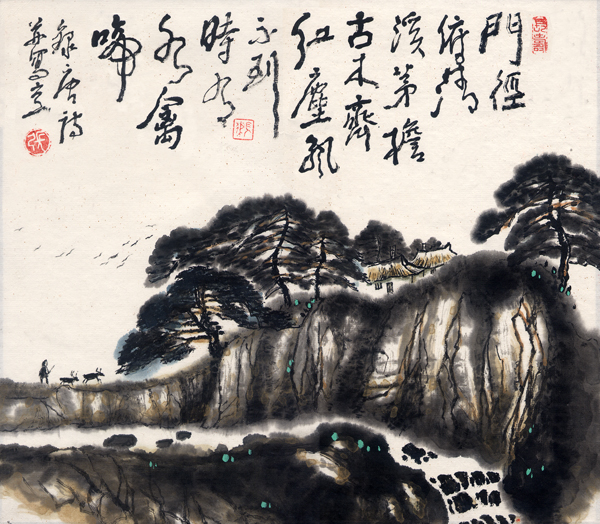 長壽
門徑
俯清
溪茅檐
古木齊
紅塵飄
不到
時有
水禽
啼
錄唐詩
并寫意
張